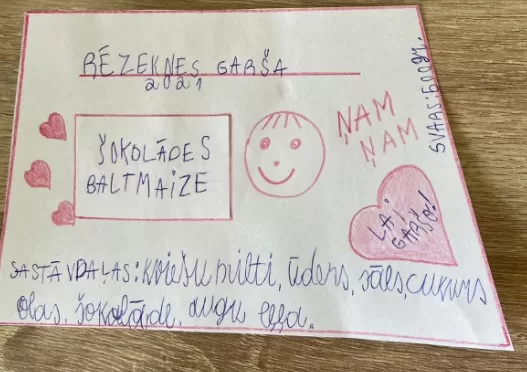 RĒZEKNES GARŠA
2021
ŠOKOLĀDES
BALTMAIZE
ŅAM
ŅAM
SVARS: 600gr.
LAI
GARŠO!
SASTĀVDAĻAS: kviešu milti, ūdens, sāls, cukurs
olas, šokolāde, augu eļļa.